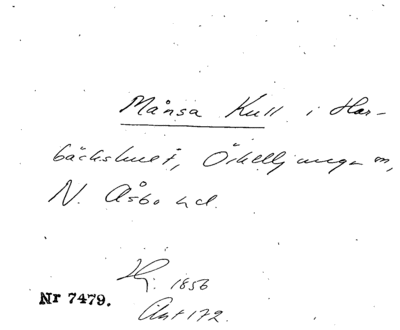 Månsa Kull i Har-
bäckshult, Örkelljunga sn,
N. Åsbo hd.
Hj. 1856
Nr 7479.
Ant 172.